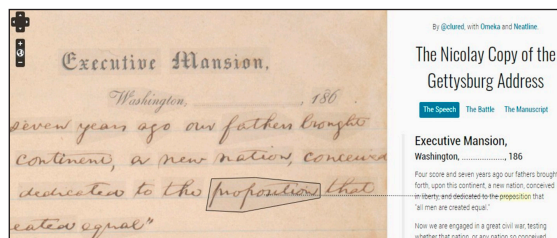 Executive Mansion,
Washington, ____________, 186
seven years ago our fathers brought
continent, a new nation, conceived
dedicated to the proposition that
eated equal"
By @clured, with Omeka and Neatline.
The Nicolay Copy of the
Gettysburg Address
The Speech The Battle The Manuscript
Executive Mansion,
Washington, ...................., 186
Four score and seven years ago our fathers brought
forth, upon this continent, a new nation, conceived
in liberty, and dedicated to the proposition that
"all men are created equal."
Now we are engaged in a great civil war, testing
whether that nation, or any nation so conceived,